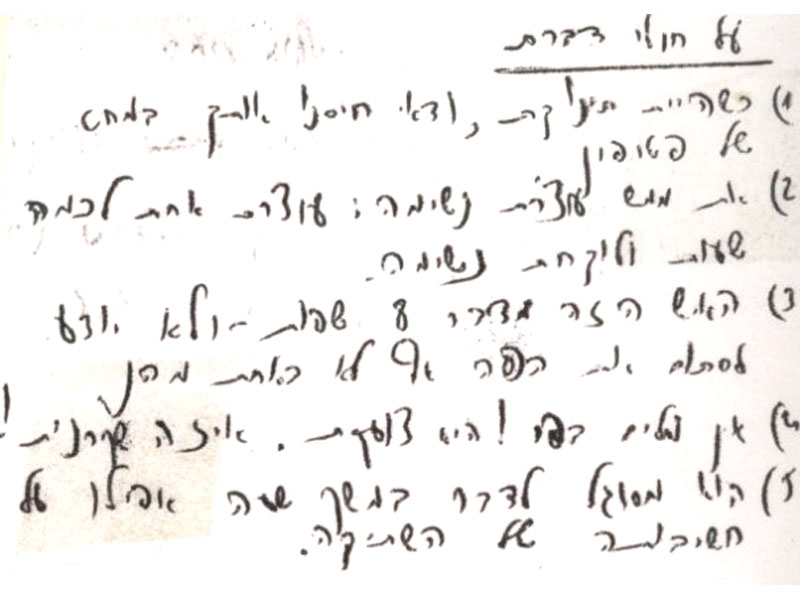 על חולי דברת
1) כשהיית תינוקת, ודאי חיסנו אותך במחט
של פטיפון
2) את ממש עוצרת נשימה: עוצרת אחת לכמה
שעות ולוקחת נשימה.
3) האיש הזה מדבר 8 שפות - ולא יודע
לסתום את הפה אף לא באחת מהן
4) אין מלים בפי! היא צועקת. איזה שקרנית!
5) הוא מסוגל לדבר במשך שעה אפילו על
חשיבותה של השתיקה.